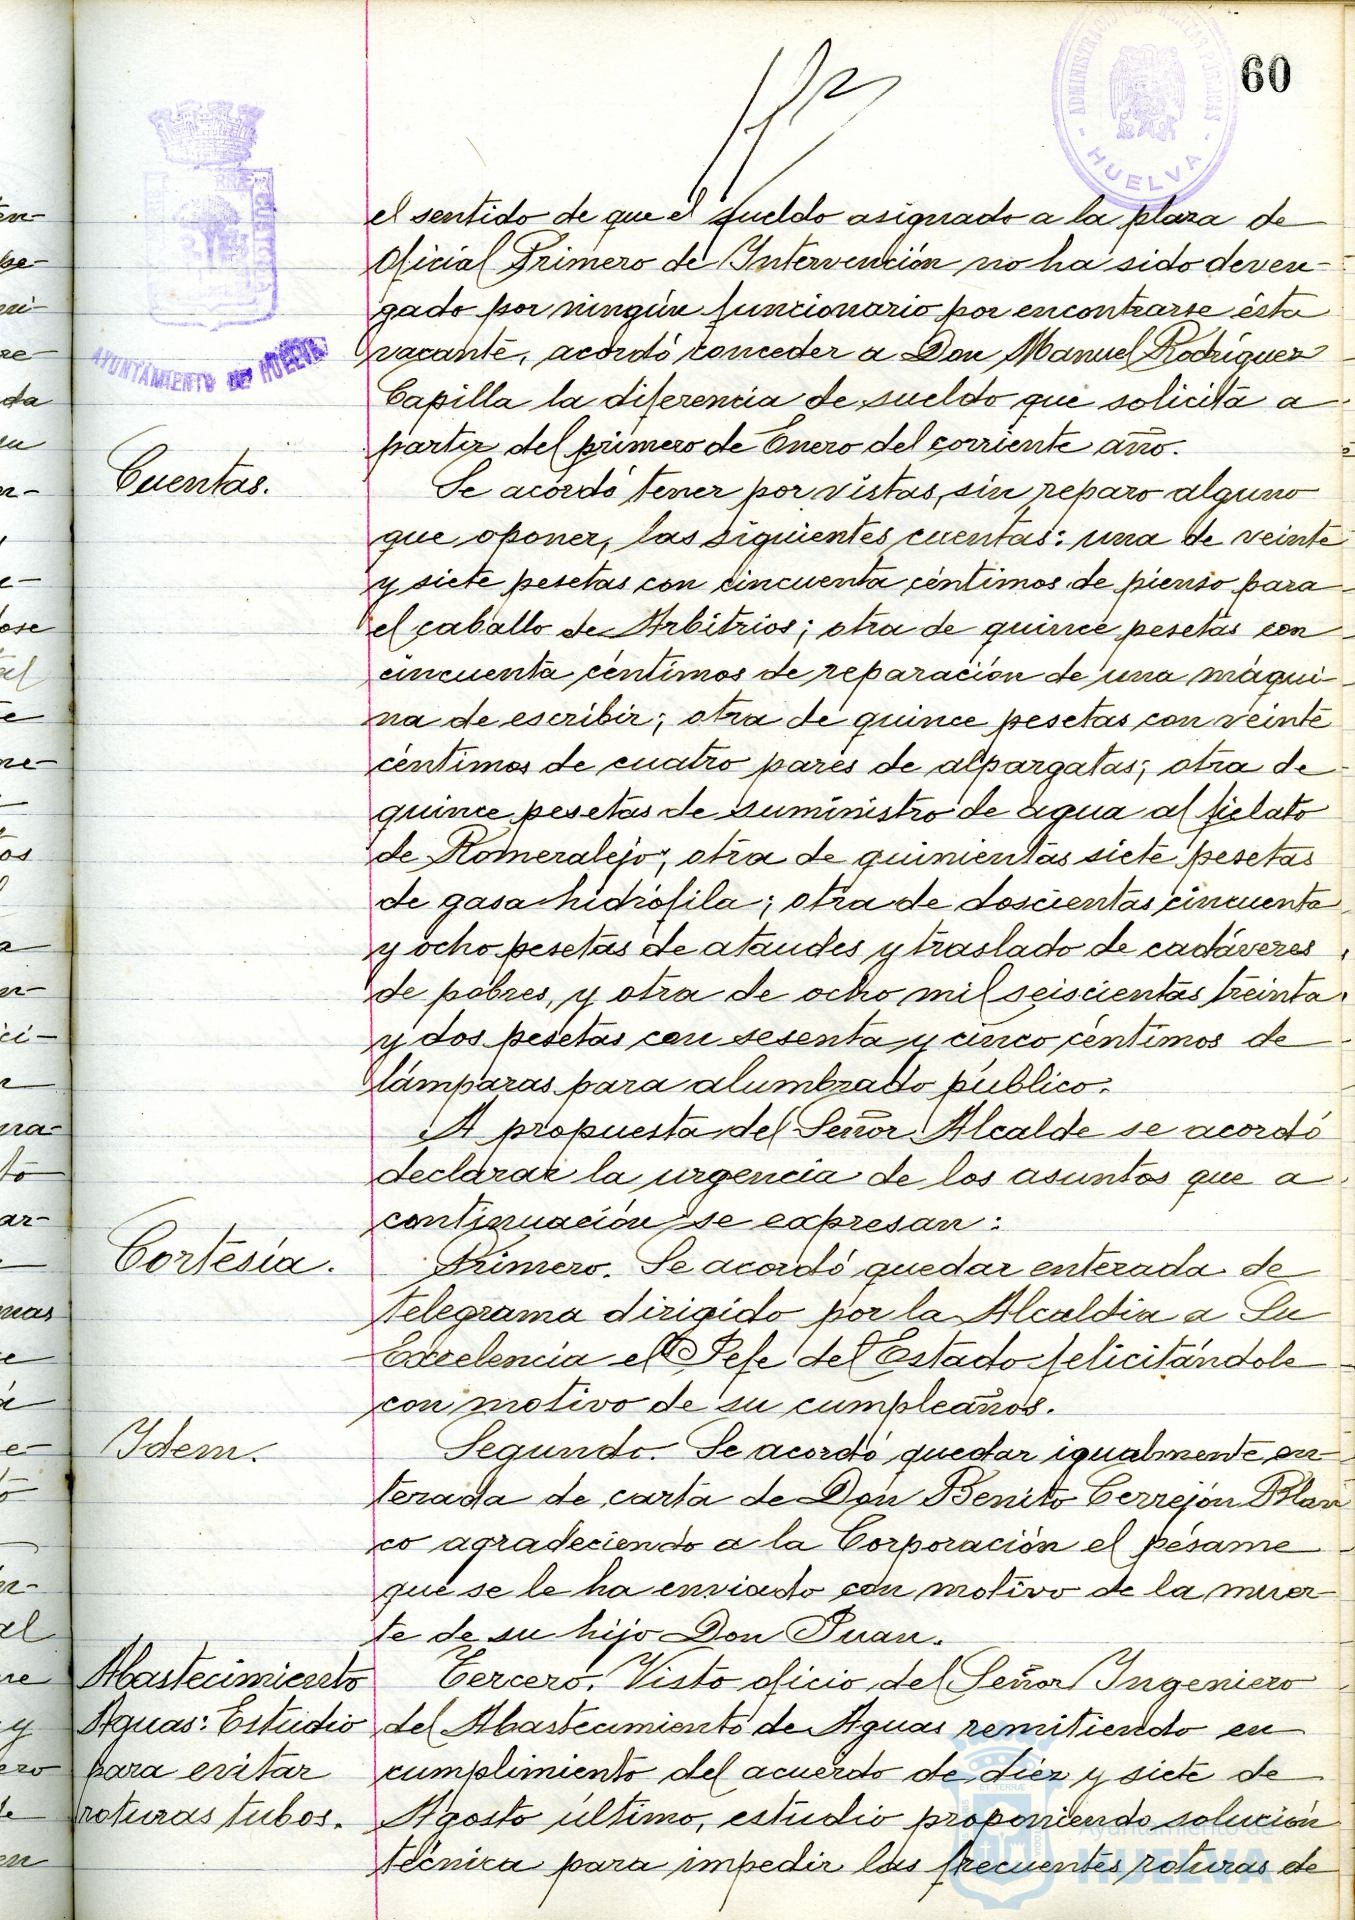 60
ADMINISTRACIÓN DE RENTAS PÚBLICAS
HUELVA
AYUNTAMIENTO DE HUELVA
el sentido de que el sueldo asignado a la plaza de
Oficial Primero de Intervención no ha sido deven-
gado por ningún funcionario por encontrarse ésta
vacante, acordó conceder a Don Manuel Rodríguez
Capilla la diferencia de sueldo que solicita a
partir del primero de Enero del corriente año.
Cuentas.
Se acordó tener por vistas, sin reparo alguno
que oponer, las siguientes cuentas: una de veinte
y siete pesetas con cincuenta céntimos de pienso para
el caballo de Arbitrios; otra de quince pesetas con
cincuenta céntimos de reparación de una máqui-
na de escribir; otra de quince pesetas con veinte
céntimos de cuatro pares de alpargatas; otra de
quince pesetas de suministro de agua al fielato
de Romeralejo; otra de quinientas siete pesetas
de gasa hidrófila; otra de doscientas cincuenta
y ocho pesetas de ataudes y traslado de cadáveres
de pobres, y otra de ocho mil seiscientas treinta
y dos pesetas con sesenta y cinco céntimos de
lámparas para alumbrado público.
A propuesta del Señor Alcalde se acordó
declarar la urgencia de los asuntos que a
continuación se expresan:
Cortesía.
Primero. Se acordó quedar enterada de
telegrama dirigido por la Alcaldia a Su
Excelencia el Jefe del Estado felicitándole
con motivo de su cumpleaños.
Idem.
Segundo. Se acordó quedar igualmente en-
terada de carta de Don Benito Cerrejón Blan
co agradeciendo a la Corporación el pésame
que se le ha enviado con motivo de la muer-
te de su hijo Don Juan.
Abastecimiento
Aguas: Estudio
para evitar
roturas tubos.
Tercero. Visto oficio del Señor Ingeniero
del Abastecimiento de Aguas remitiendo en
cumplimiento del acuerdo de diez y siete de
Agosto último, estudio proponiendo solución
técnica para impedir las frecuentes roturas de
Ayuntamiento de
HUELVA